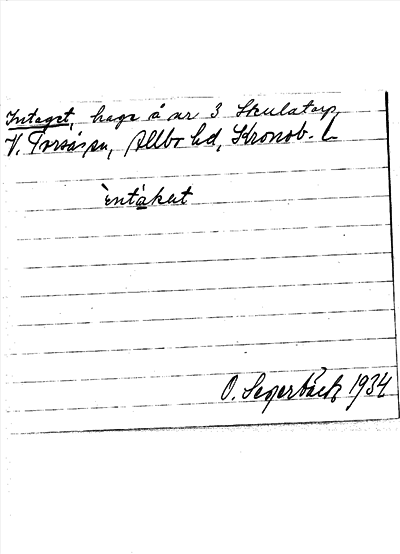 Intaget, hage å nr 3 Skulatorp,
V. Torsås sn, Allbo hd, Kronob. L
èntàket
O. Segerbäck 1934